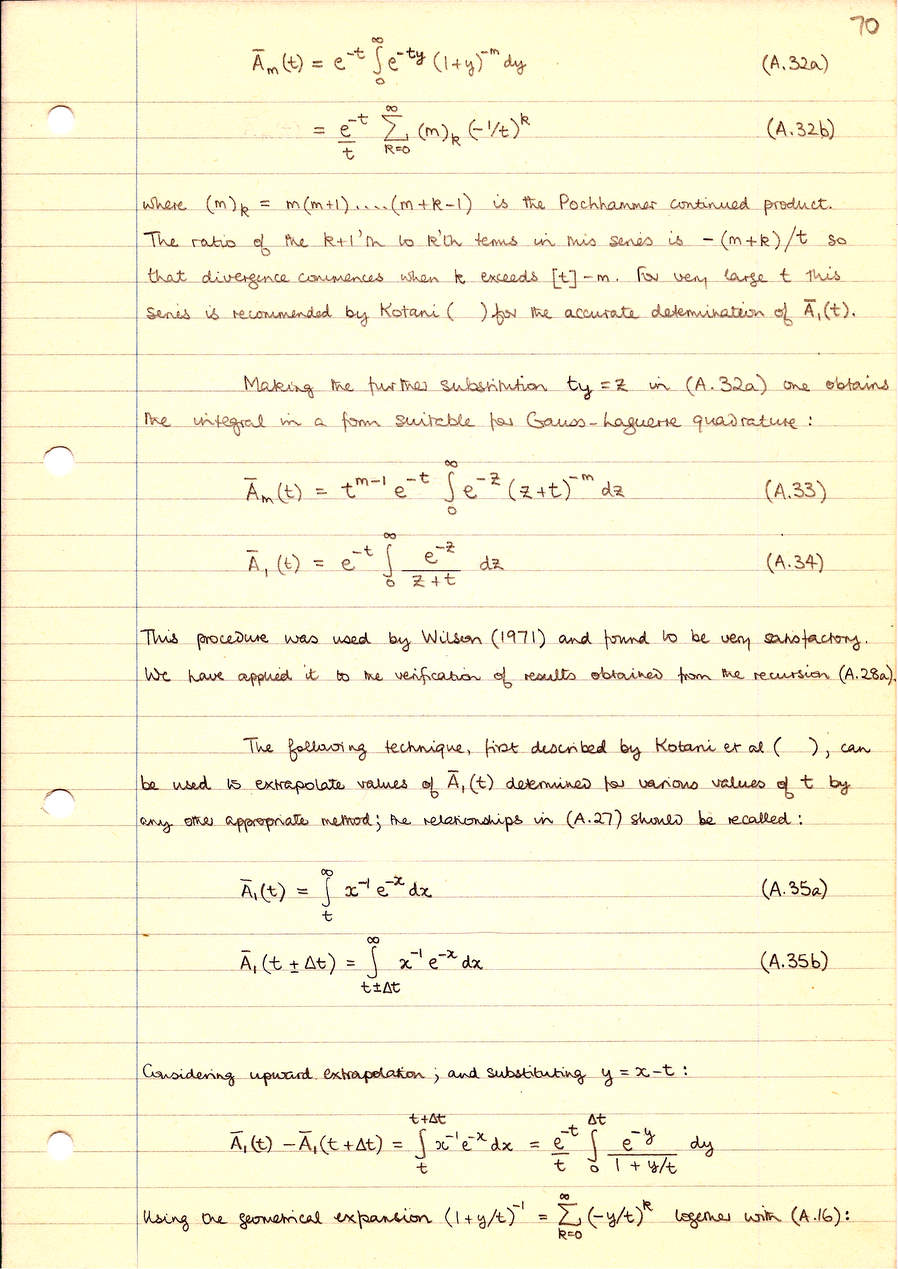 70
Ā_m(t) = e^{-t} ∫_0^∞ e^{-ty} (1+y)^{-m} dy (A.32a)
= e^{-t}/t ∑_{k=0}^∞ (m)_k (-1/t)^k (A.32b)
where (m)_k = m(m+1)....(m+k-1) is the Pochhammer continued product.
The ratio of the k+1'th to k'th terms in this series is -(m+k)/t so
that divergence commences when k exceeds [t]-m. For very large t this
series is recommended by Kotani ( ) for the accurate determination of Ā_1(t).
Making the further substitution ty = z in (A.32a) one obtains
the integral in a form suitable for Gauss-Laguerre quadrature :
Ā_m(t) = t^{m-1} e^{-t} ∫_0^∞ e^{-z} (z+t)^{-m} dz (A.33)
Ā_1(t) = e^{-t} ∫_0^∞ e^{-z}/(z+t) dz (A.34)
This procedure was used by Wilson (1971) and found to be very satisfactory.
We have applied it to the verification of results obtained from the recursion (A.28a).
The following technique, first described by Kotani et al ( ), can
be used to extrapolate values of Ā_1(t) determined for various values of t by
any other appropriate method; the relationships in (A.27) should be recalled :
Ā_1(t) = ∫_t^∞ x^{-1} e^{-x} dx (A.35a)
Ā_1(t ± Δt) = ∫_{t±Δt}^∞ x^{-1} e^{-x} dx (A.35b)
Considering upward extrapolation ; and substituting y = x-t :
Ā_1(t) - Ā_1(t+Δt) = ∫_t^{t+Δt} x^{-1} e^{-x} dx = e^{-t}/t ∫_0^{Δt} e^{-y}/(1 + y/t) dy
Using the geometrical expansion (1+y/t)^{-1} = ∑_{k=0}^∞ (-y/t)^k together with (A.16):